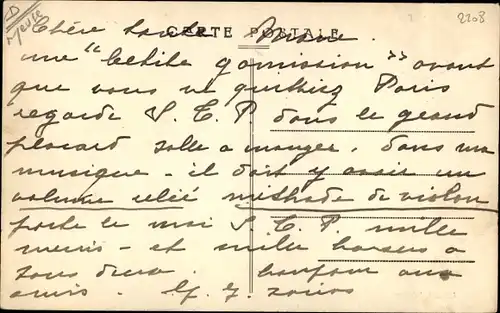 D
Meuse
2208
CARTE POSTALE
Chère tante
une "Petite commission" avant
que vous ne quittiez Paris
regarde S.T.P. dans le grand
placard salle a manger, dans ma
musique - il doit y avoir un
volume relié méthode de violon
porte le moi S.T.P. mille
mercis - et mille baisers a
vous deux. bonjour aux
amis.